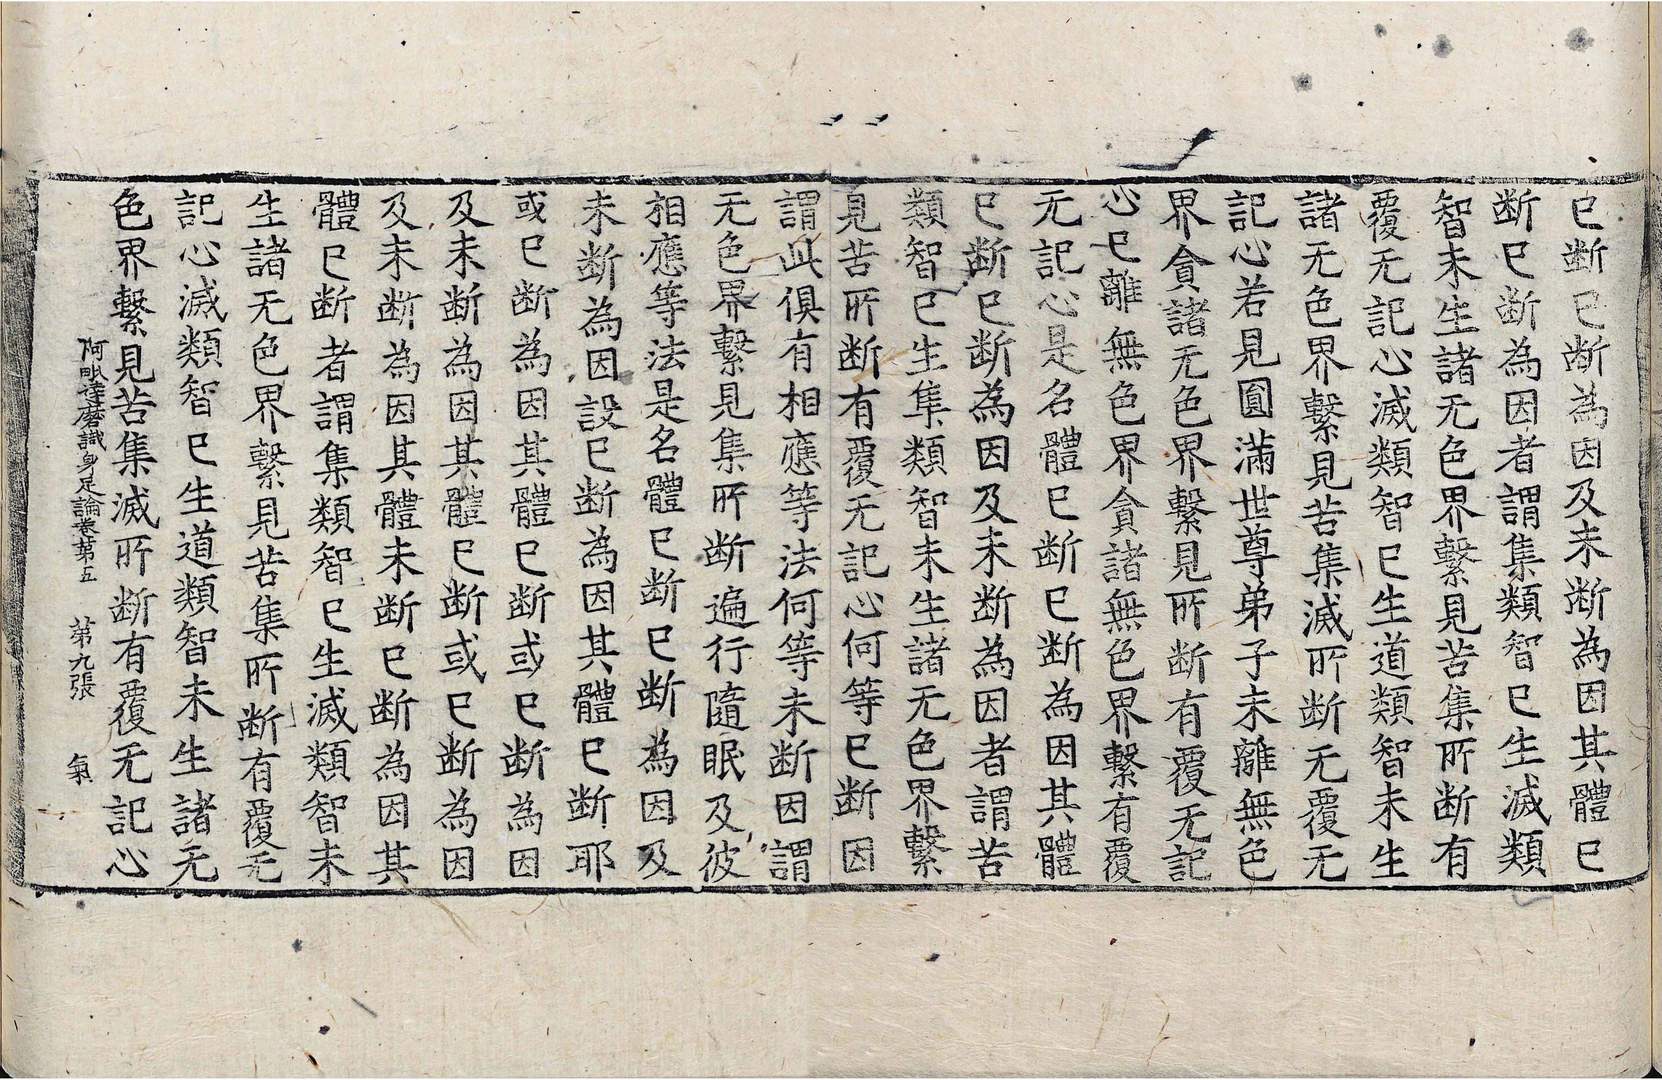 已断已断為因及未断為因其體已
断已断為因者謂集類智已生滅類
智未生諸无色界繫見苦集所断有
覆无記心滅類智已生道類智未生
諸无色界繫見苦集滅所断无覆无
記心若見圓滿世尊弟子未離無色
界貪諸无色界繫見所断有覆无記
心已離無色界貪諸無色界繫有覆
无記心是名體已断已断為因其體
已断已断為因及未断為因者謂苦
類智已生集類智未生諸无色界繫
見苦所断有覆无記心何等已断因
謂此俱有相應等法何等未断因謂
无色界繫見集所断遍行隨眠及彼
相應等法是名體已断已断為因及
未断為因設已断為因其體已断耶
或已断為因其體已断或已断為因
及未断為因其體已断或已断為因
及未断為因其體未断已断為因其
體已断者謂集類智已生滅類智未
生諸无色界繫見苦集所断有覆无
記心滅類智已生道類智未生諸无
色界繫見苦集滅所断有覆无記心
阿毗達磨識身足論卷苐五 苐九張 氣